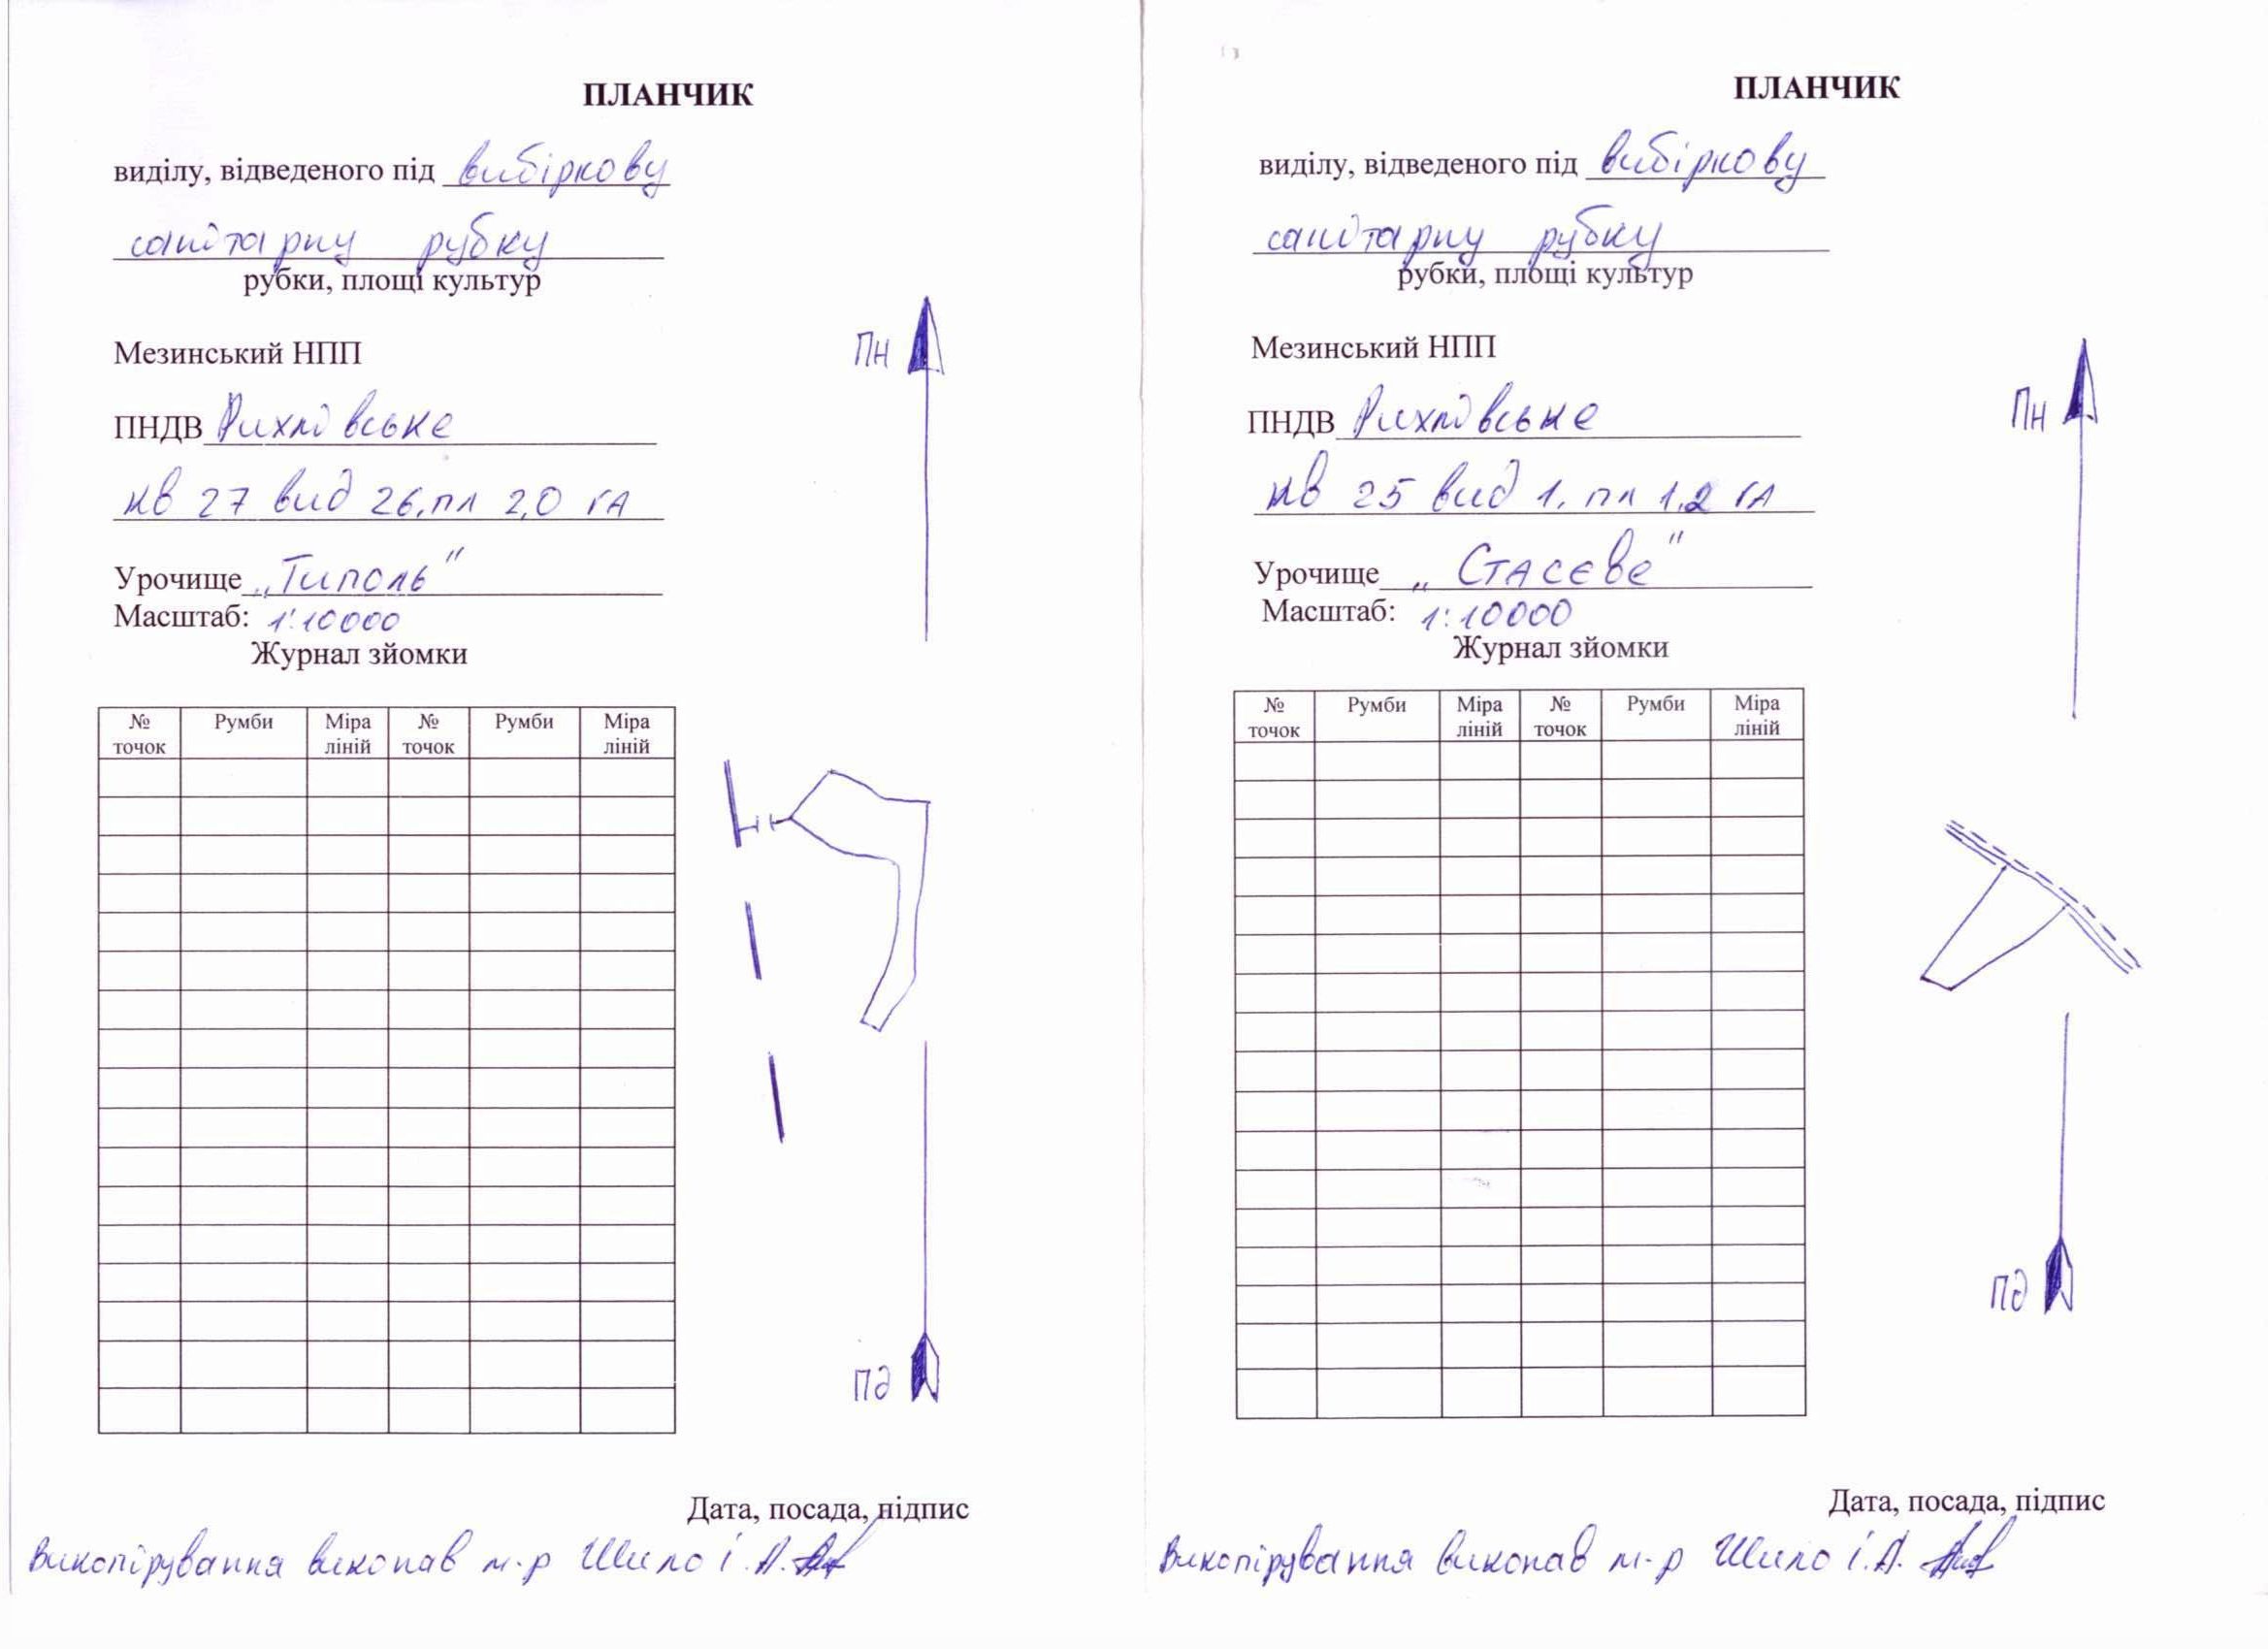 ПЛАНЧИК
виділу, відведеного під вибіркову
санітарну рубку
рубки, площі культур
Пн
Мезинський НПП
ПНДВ Рихлівське
кв 27 вид 26, пл 2,0 га
Урочище „Типоль"
Масштаб: 1:10000
Журнал зйомки
№ точок Румби Міра ліній № точок Румби Міра ліній
Пд
Дата, посада, підпис
Викопірування виконав м-р Шило І.А.
ПЛАНЧИК
виділу, відведеного під вибіркову
санітарну рубку
рубки, площі культур
Мезинський НПП
Пн
ПНДВ Рихлівське
кв 25 вид 1, пл 1,2 га
Урочище „Стасєве"
Масштаб: 1:10000
Журнал зйомки
№ точок Румби Міра ліній № точок Румби Міра ліній
Пд
Дата, посада, підпис
Викопірування виконав м-р Шило І.А.